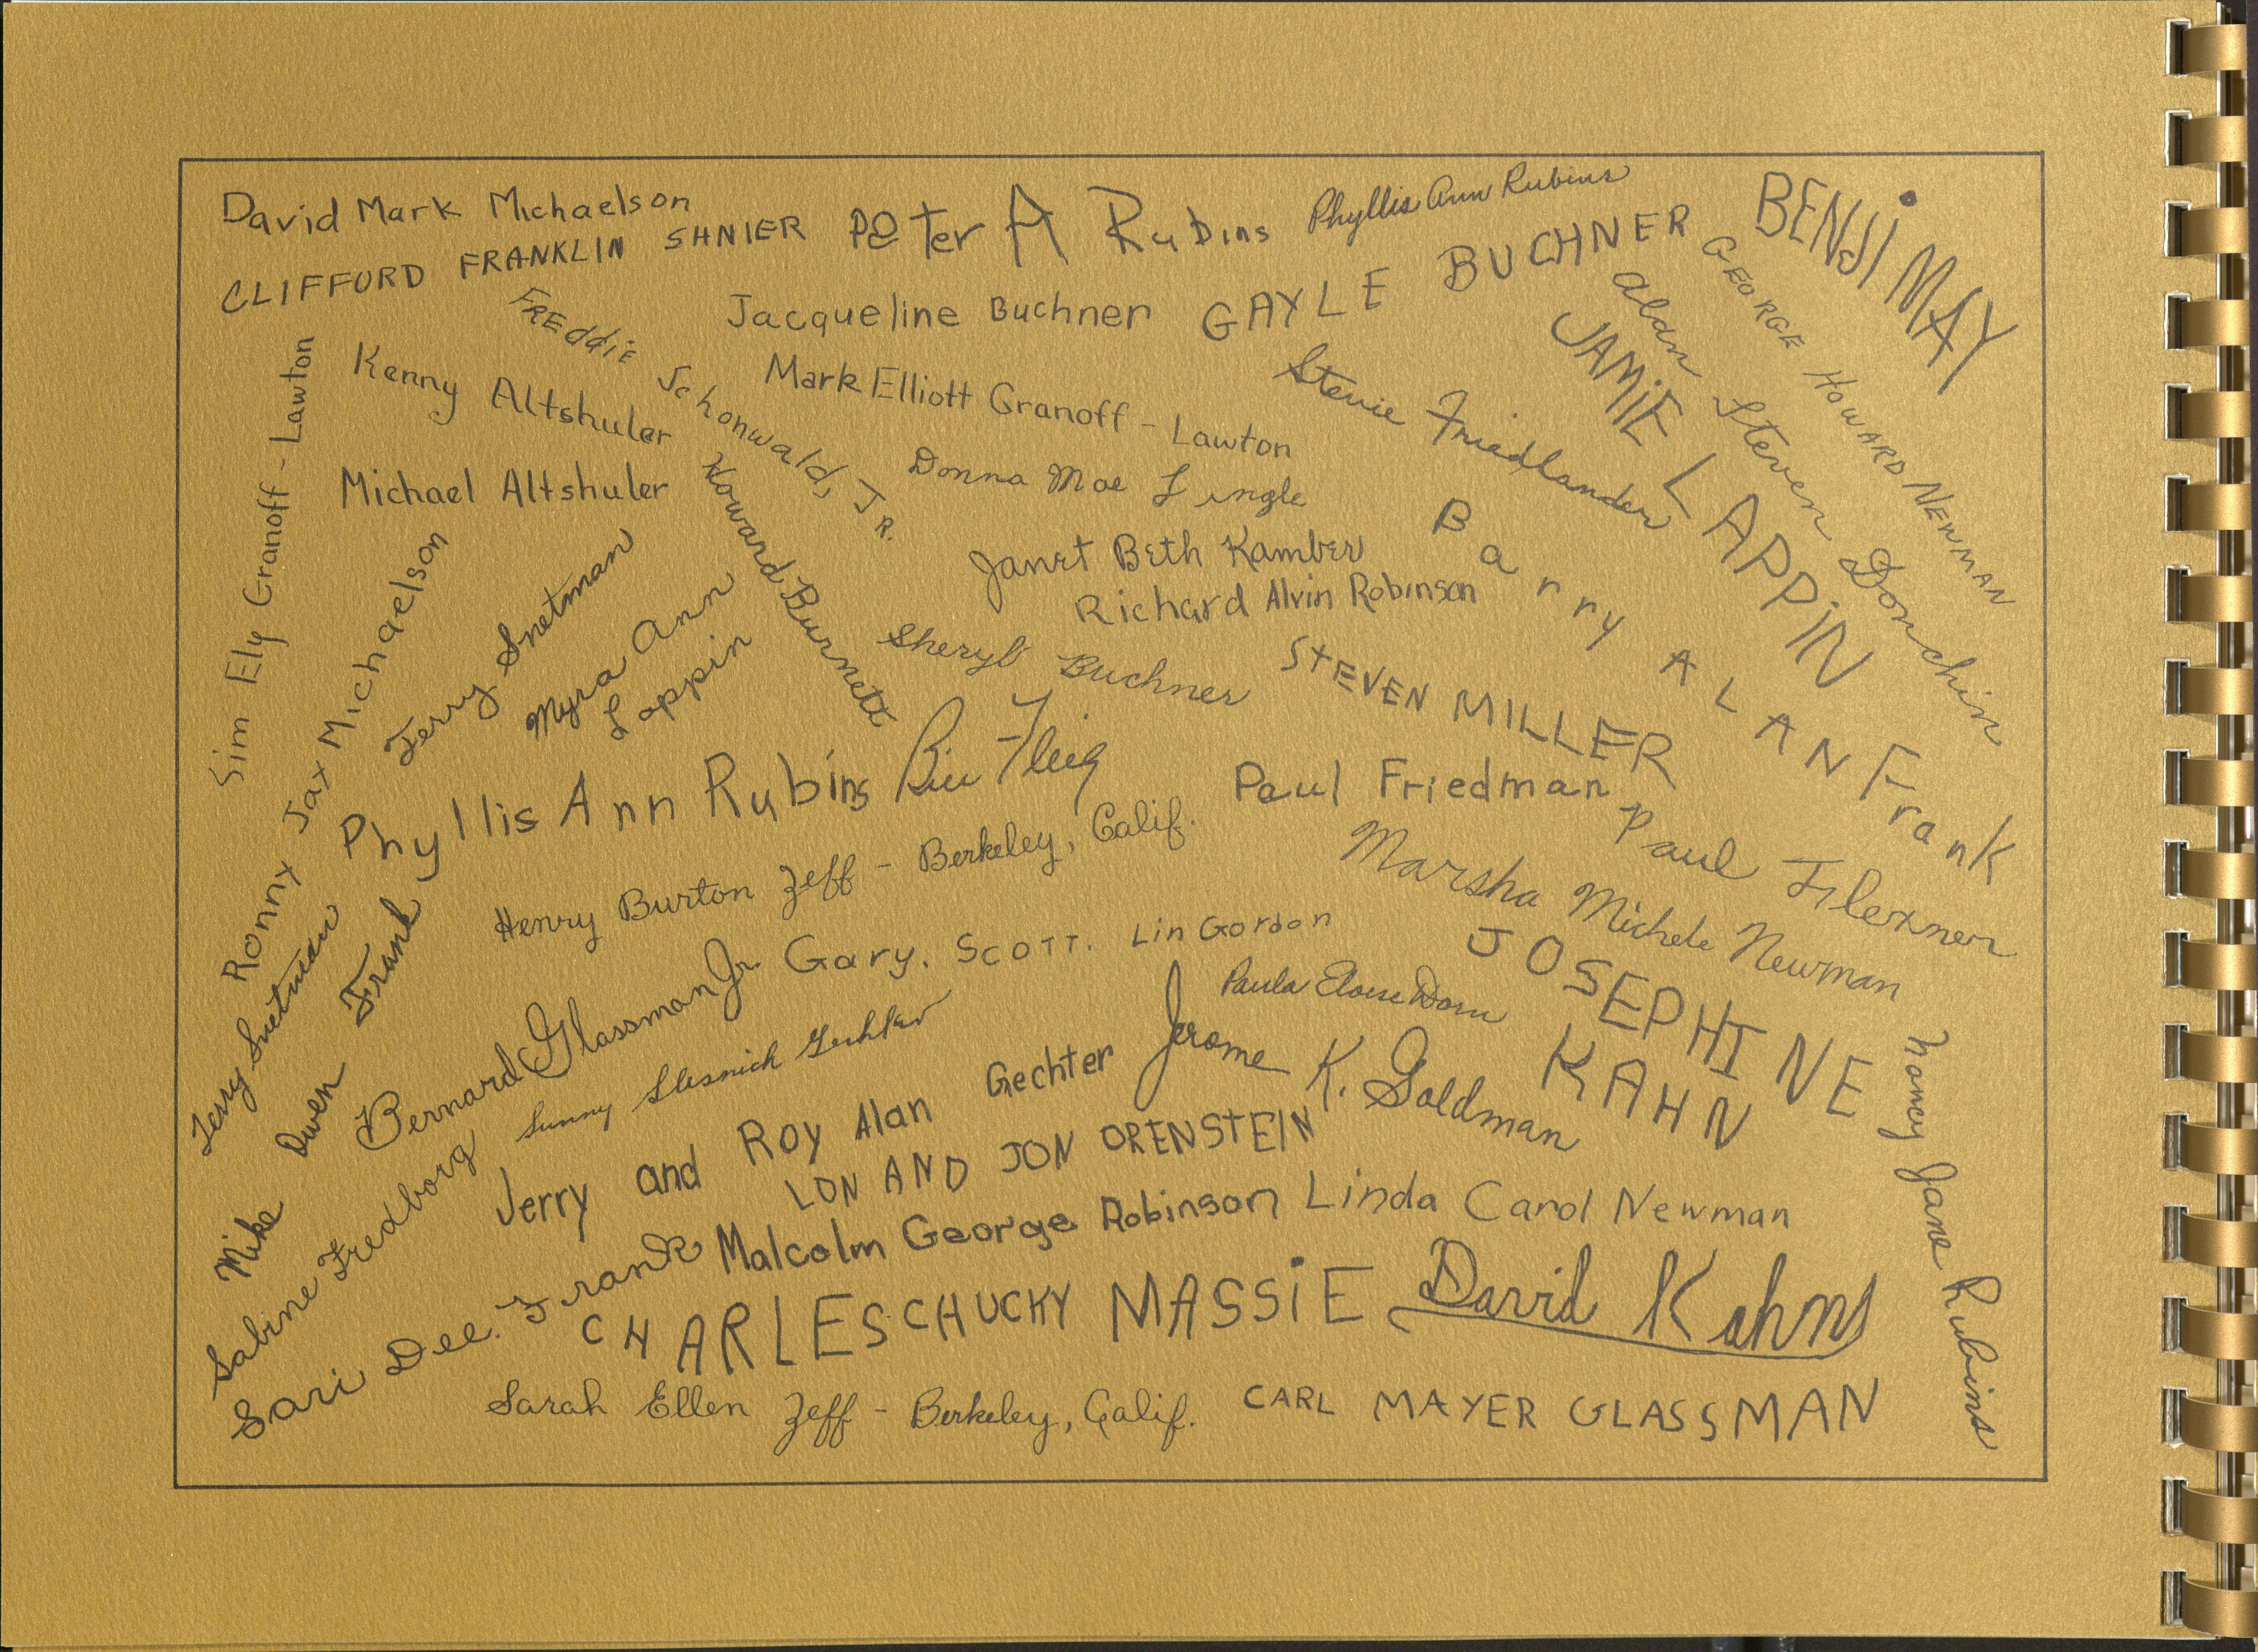 David Mark Michaelson
CLIFFORD FRANKLIN SHNIER
PETer A Rubins
Phyllis Ann Rubins
BENJi MAY
GAYLE BUCHNER
Jacqueline Buchner
GEORGE HOWARD NEWMAN
Alan Steven Donchin
JAMiE LAPPiN
FREddiE Schonwald, JR.
Kenny Altshuler
Mark Elliott Granoff - Lawton
Stevie Friedlander
Sim Ely Granoff - Lawton
Michael Altshuler
Donna Mae Lingle
Howard Burnett
Janet Beth Kamber
Richard Alvin Robinson
Barry ALAN Frank
Ronny Jax Michaelson
Terry Snetman
Myra Ann
Lappin
Sheryl Buchner
STEVEN MILLER
Phyllis Ann Rubins
Paul Friedman
Paul Flexner
Henry Burton Zeff - Berkeley, Calif.
Marsha Michele Newman
Terry Snetman
Mike Owen Frank
Bernard Glassman Jr.
Gary. SCOTT. Lin Gordon
Paula Eloise Dorn
JOSEPHINE
KAHN
Sunny
Jerry and Roy Alan Gechter
Jerome K. Goldman
LON AND JON ORENSTEIN
Nancy Jane Rubins
Sabine Fredborg
Malcolm George Robinson
Linda Carol Newman
Sari Dee. Frank
CHARLES CHUCKY MASSiE
David Kahn
Sarah Ellen Zeff - Berkeley, Calif.
CARL MAYER GLASSMAN